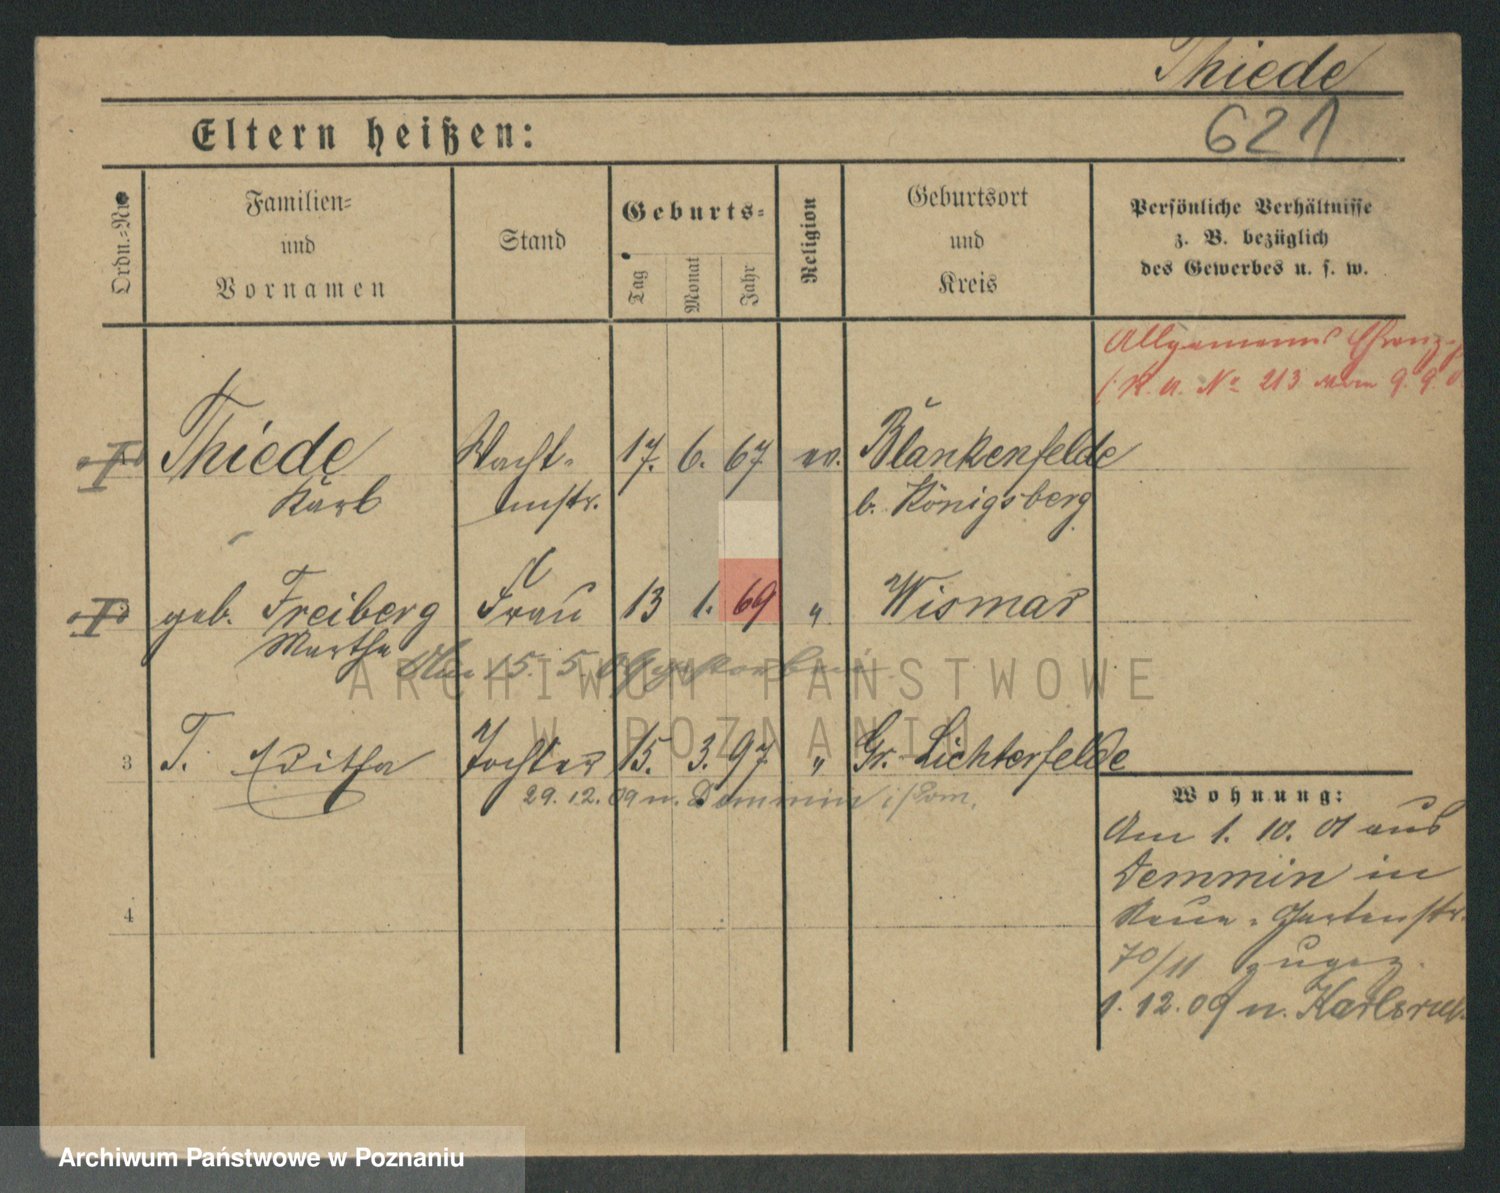 Thiede
621
Eltern heißen:
Ordn.-Nr.
Familien-
und
Vornamen
Stand
Geburts-
Tag
Monat
Jahr
Religion
Geburtsort
und
Kreis
Persönliche Verhältnisse
z. B. bezüglich
des Gewerbes u. s. w.
Allgemeines
No 213 vom 9. 9.
Thiede Wacht- 17. 6. 67 ev. Blankenfelde
Karl mstr. b. Königsberg
geb. Freiberg Frau 13 1. 69 " Wismar
Martha
Am 15. 5. 09 gestorben
ARCHIWUM PAŃSTWOWE
W POZNANIU
3 T. Editha Tochter 15. 3. 97 " Gr. Lichterfelde
29. 12. 09 n. Demmin i/Pom.
Wohnung:
Am 1. 10. 01 aus
Demmin in
Neue-Gartenstr.
70/11 zugez.
1. 12. 09 n. Karlsruh.
4
Archiwum Państwowe w Poznaniu